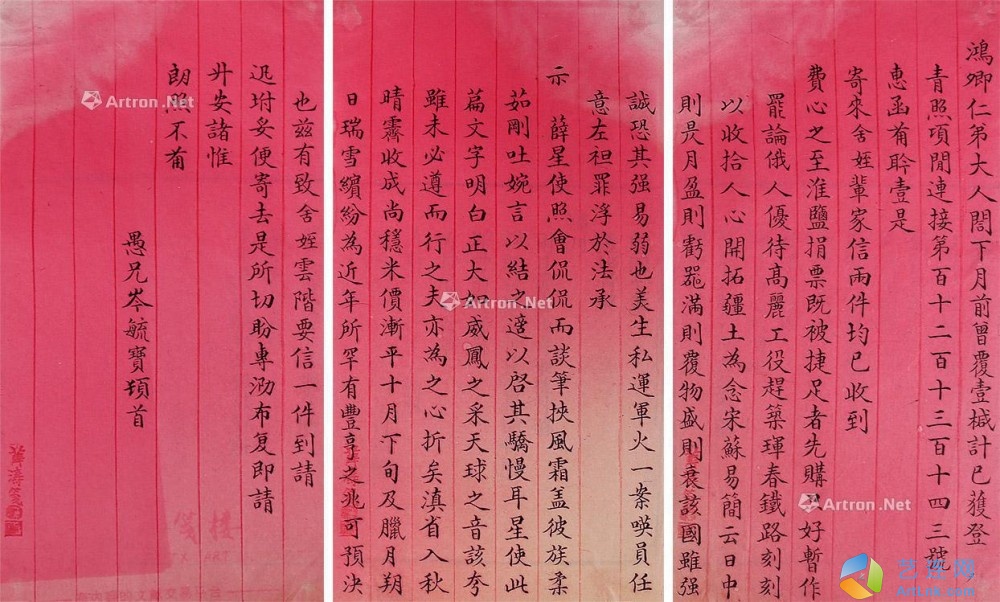 鴻卿仁弟大人閣下月前曾覆壹椷計已獲登
青照項閒連接第百十二百十三百十四三號
惠函肯聆壹是
寄來舍姪輩家信兩件均已收到
費心之至淮鹽捐票既被捷足者先購 好暫作
罷論俄人優待高麗工役趕築琿春鐵路刻刻
以收拾人心開拓疆土為念宋蘇易簡云日中
則昃月盈則虧器滿則覆物盛則衰該國雖强
誠恐其强易弱也美生私運軍火一案嘆員任
意左袒罪浮於法承
示 薛星使照會侃侃而談筆挾風霜盖彼族柔
茹剛吐婉言以結之適以啓其驕慢耳星使此
篇文字明白正大如威鳳之采天球之音該夸
雖未必遵而行之夫亦為之心折矣滇省入秋
晴霽收成尚穩米價漸平十月下旬及臘月朔
日瑞雪繽紛為近年所罕有豐享之兆可預決
也兹有致舍姪雲階要信一件到請
迅坿妥便寄去是所切盼專泐布复即請
升安諸惟
朗照不莆
愚兄岑毓寶頓首
Artron.Net
Artron.Net
Artron.Net
艺狂网